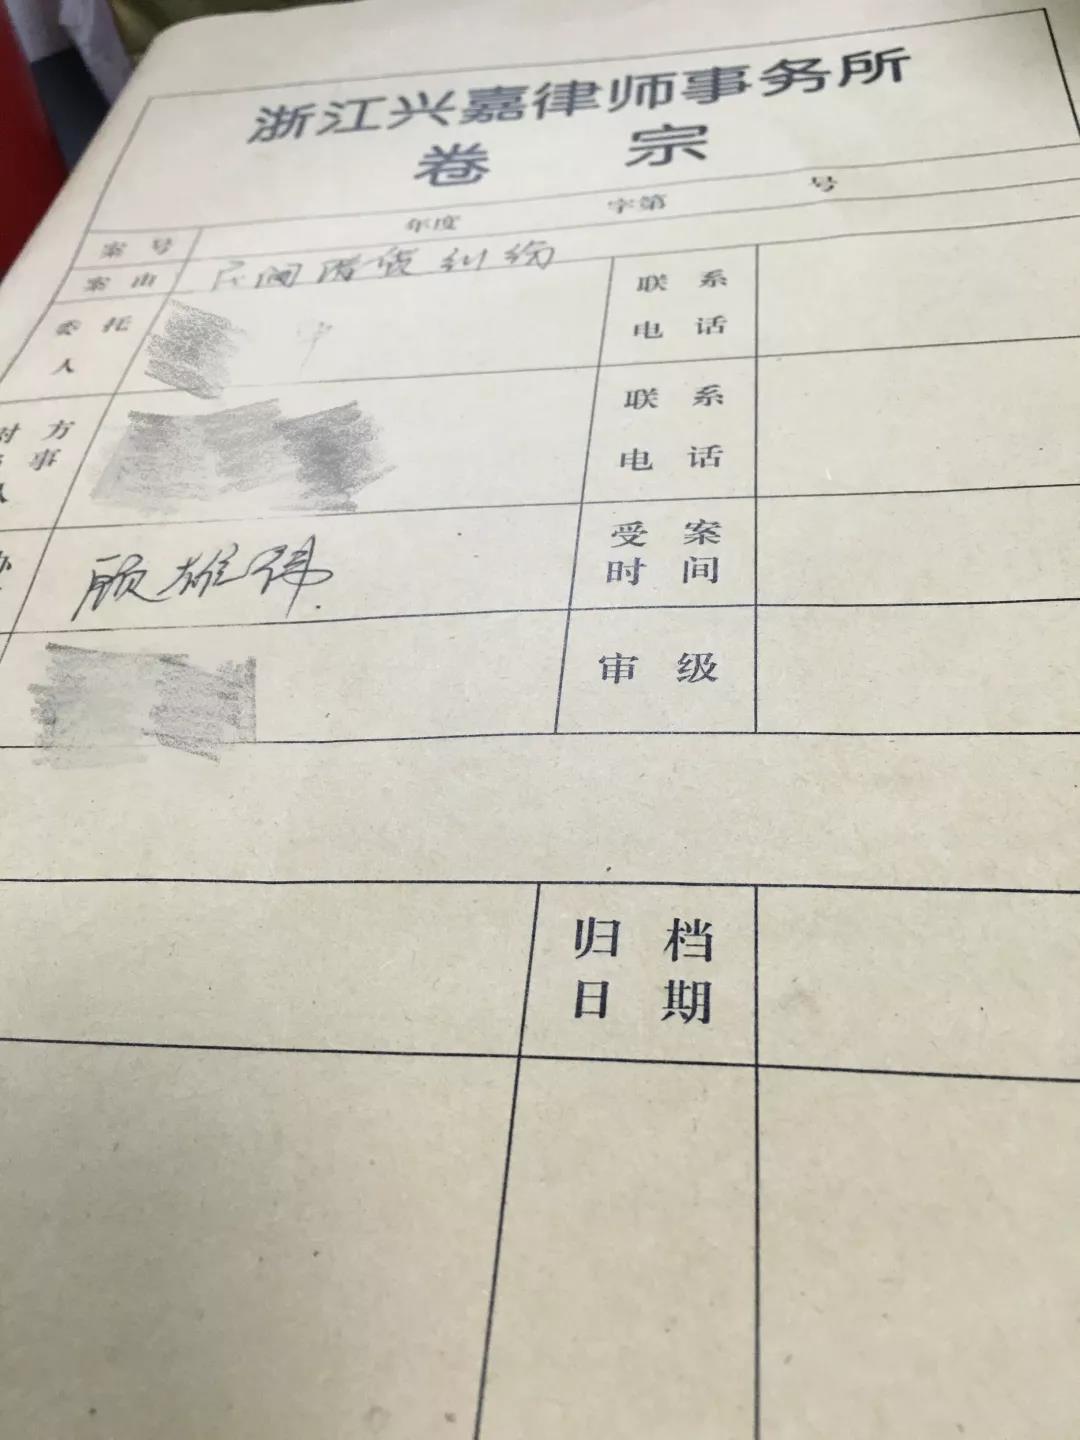 浙江兴嘉律师事务所
卷 宗
案 号 年度 字第 号
案 由 民间借贷纠纷
委 托 人 联 系 电 话
对 方 事 联 系 电 话
顾雄伟 受 案 时 间
审 级
归 档 日 期